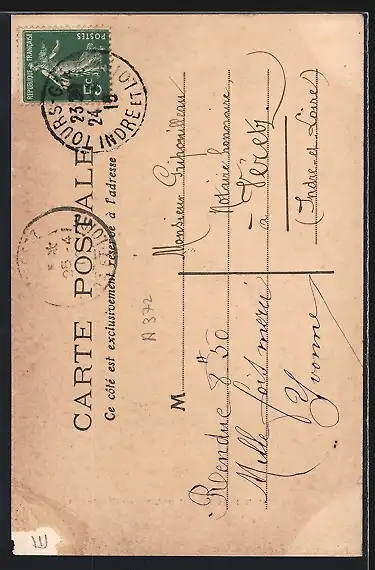 RÉPUBLIQUE FRANÇAISE
POSTES
5c
TOURS-GARE
23
24
INDRE ET L
CARTE POSTALE
Ce côté est exclusivement réservé à l'adresse
25 - 11
A 372
M
Monsieur
Notaire honoraire
à Véretz
(Indre-et-Loire)
Rendue 8h 30
Mille fois merci
Yvonne
E